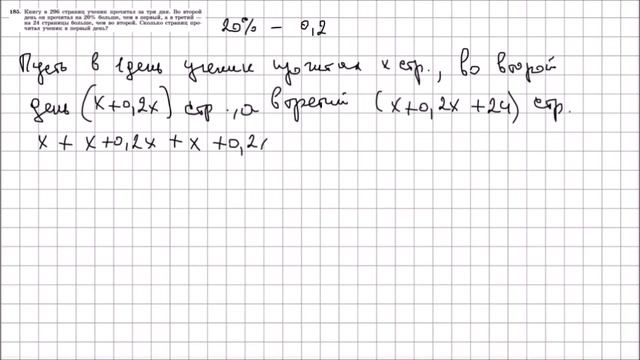 185. Книгу в 296 страниц ученик прочитал за три дня. Во второй
день он прочитал на 20% больше, чем в первый, а в третий —
на 24 страницы больше, чем во второй. Сколько страниц про-
читал ученик в первый день?
20% – 0,2
Пусть в 1 день ученик прочитал x стр., во второй
день (x+0,2x) стр., а в третий (x+0,2x+24) стр.
x + x+0,2x + x +0,2